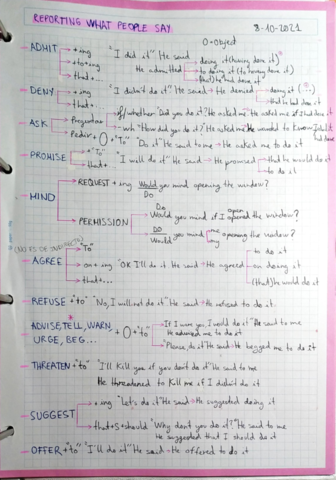 REPORTING WHAT PEOPLE SAY
8-10-2021
O=Object
ADMIT
+ing
+to+ing
+that...
"I did it" He said
He admitted
doing it (having done it)
to doing it (to having done it)
(that) he had done it
DENY
+ing
+that..
"I didn't do it" He said → He denied
doing it
that he had done it
ASK
Preguntar
if/whether "Did you do it?" He asked me → He asked me if I had done it
-wh "How did you do it?" He asked me → He wanted to know
Pedir + O + "to" "Do it" He said to me → He asked me to do it
PROMISE
+ "to"
+ that...
"I will do it" He said → He promised
that he would do it
to do it
MIND
REQUEST + ing Would you mind opening the window?
Do
PERMISSION
Do
Would you mind if I opened the window?
open
Do
Would you mind
me
my
opening the window?
AGREE
+ "to"
+ on + ing
+ that...
"OK I'll do it" He said → He agreed
to do it
on doing it
(that) he would do it
REFUSE + "to" "No, I will not do it" He said → He refused to do it.
ADVISE, TELL, WARN,
URGE, BEG...
+ O + "to"
If I were you, I would do it" He said to me
He advised me to do it
"Please, do it" He said → He begged me to do it
THREATEN + "to" "I'll kill you if you don't do it" He said to me
He threatened to kill me if I didn't do it
SUGGEST
+ing "Let's do it" He said → He suggested doing it
that+S+should "Why don't you do it?" He said to me
He suggested that I should do it
OFFER + "to" "I'll do it" He said → He offered to do it